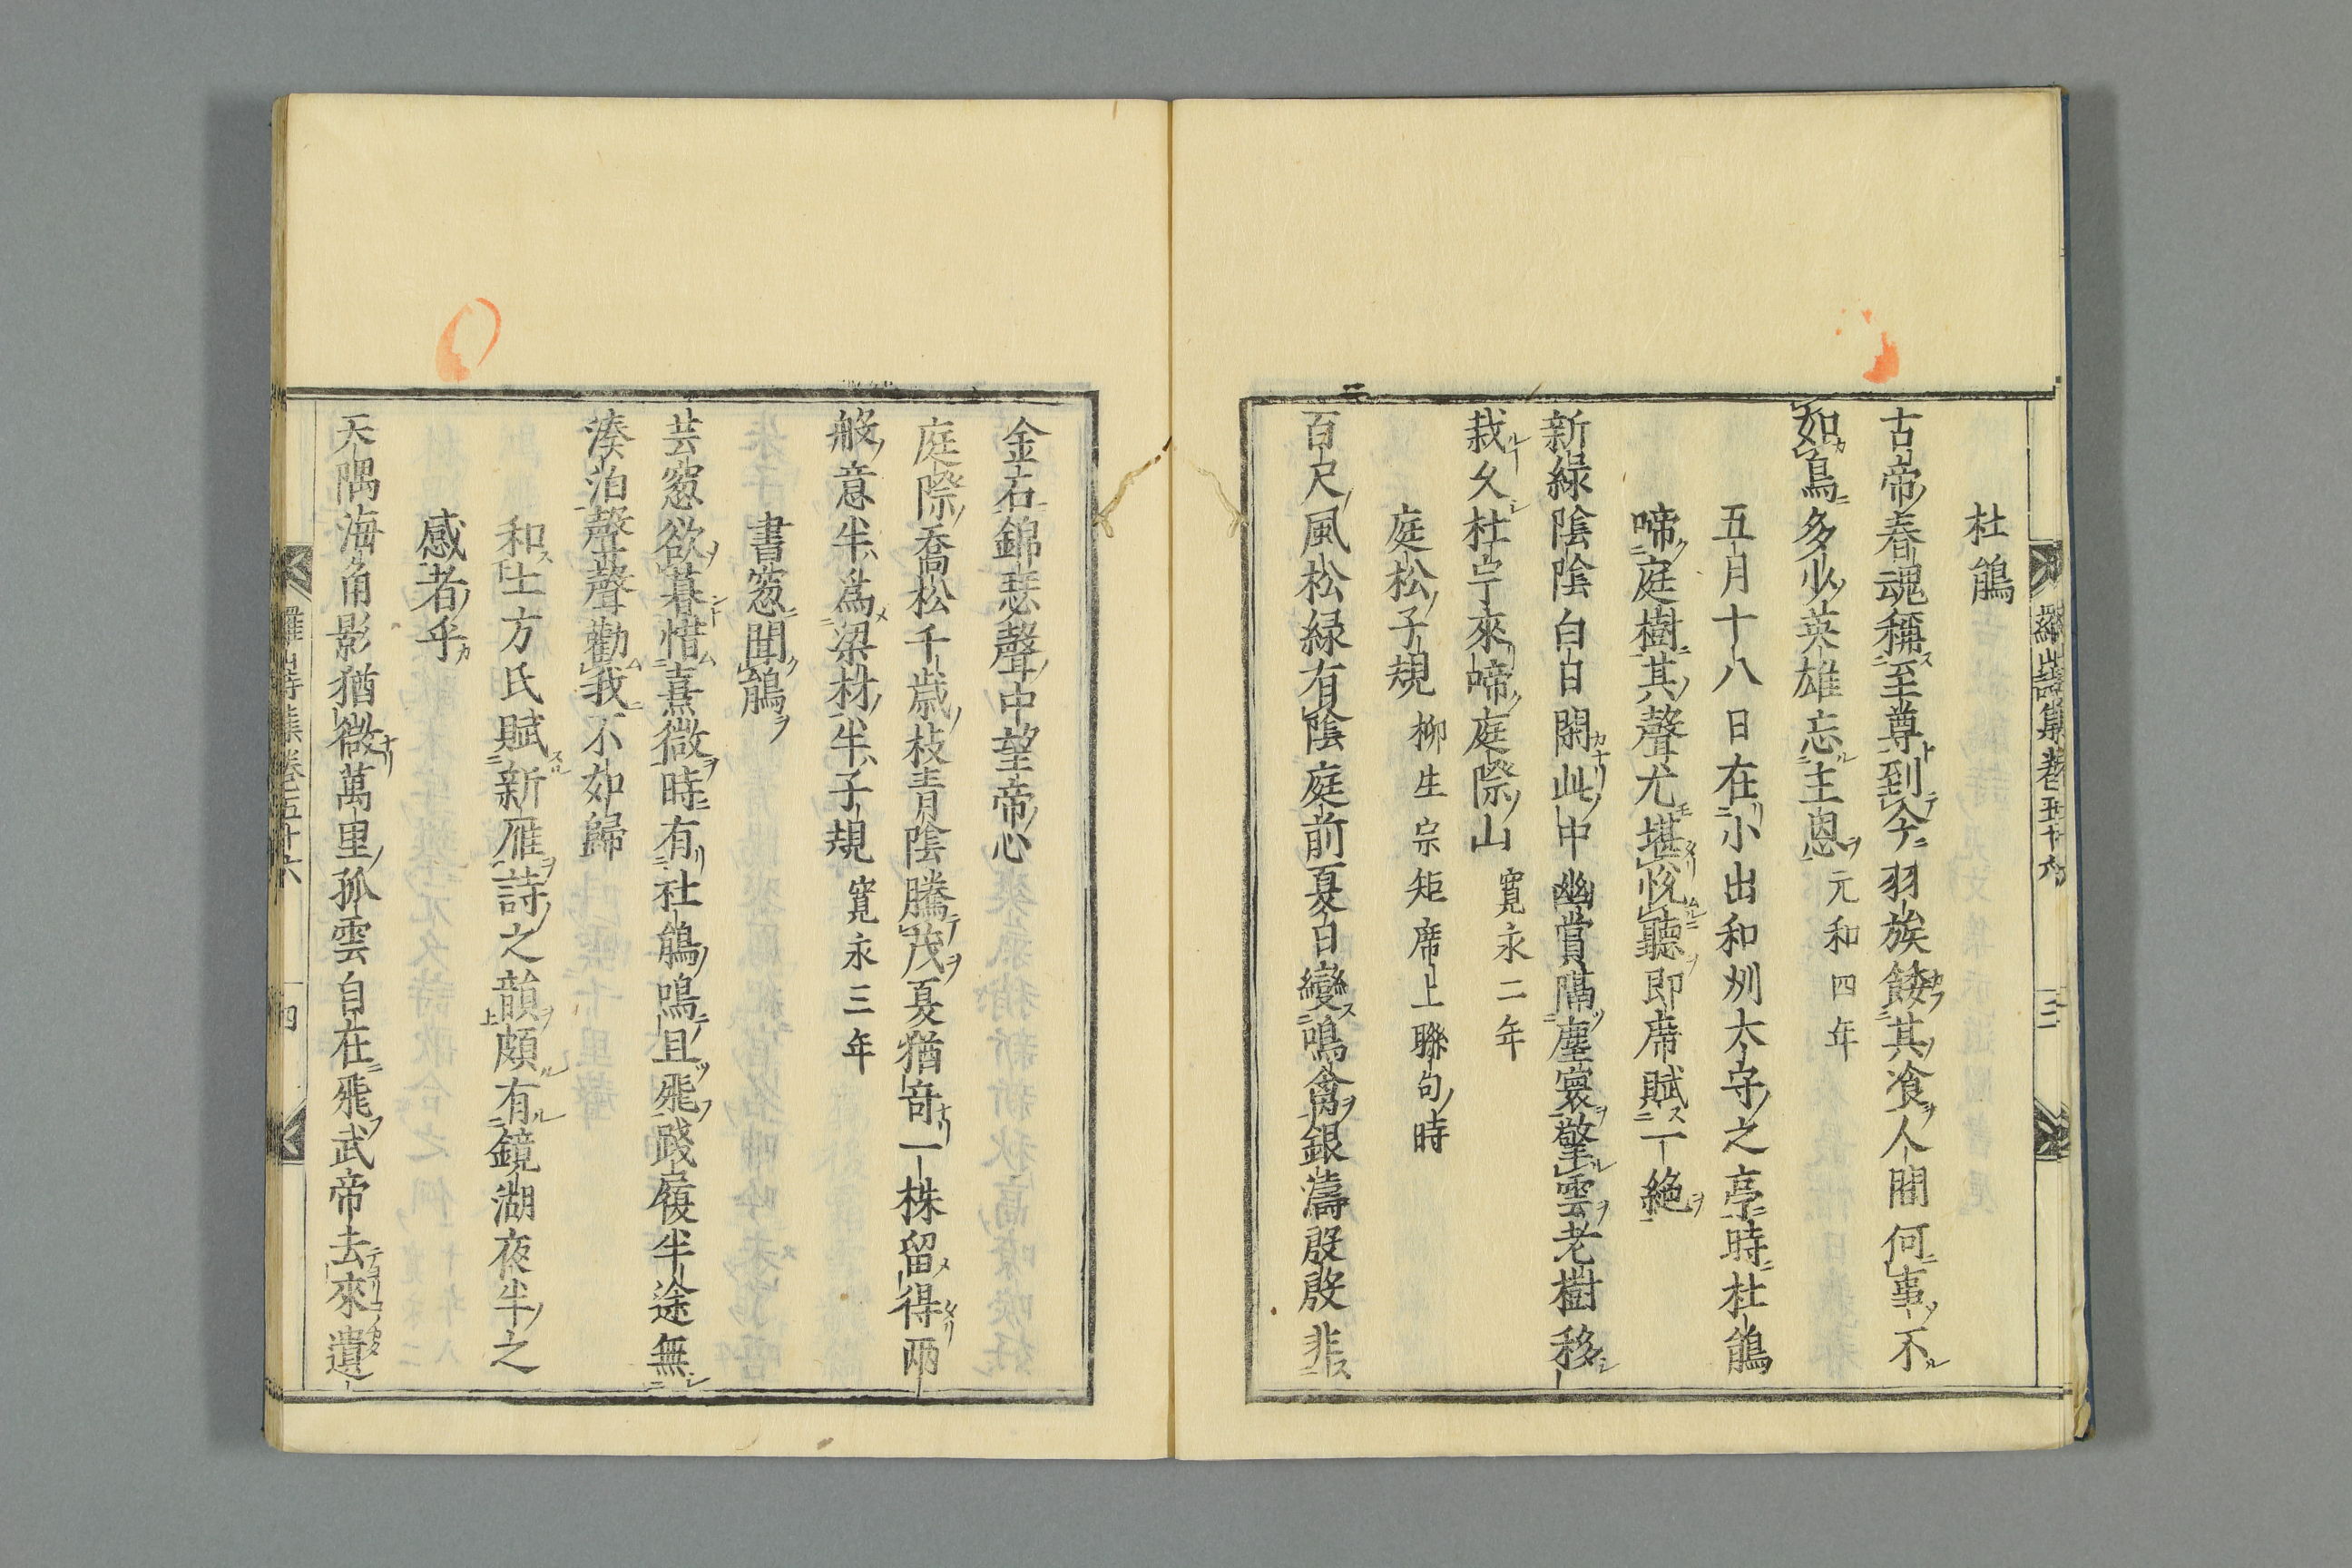 羅山詩集卷五十六
三
杜鵑
古帝春魂稱至尊到今羽族餧其飡人間何事不
如鳥多少英雄忘主恩 元和四年
五月十八日在小出和州太守之亭時杜鵑
啼庭樹其聲尤堪悅聽即席賦一絶
新緑陰陰白日閑此中幽賞隔塵寰擎雲老樹移
栽久杜宇來啼庭際山 寛永二年
庭松子規 柳生宗矩席上聯句時
百尺風松緑有陰庭前夏日變鳴禽銀濤殷殷非
金石錦瑟聲中望帝心
庭際喬松千歳枝青陰騰茂夏猶奇一株留得兩
般意半爲梁材半子規 寛永三年
書窓聞鵑
芸窓欲暮惜熹微時有杜鵑鳴且飛踐履半途無
湊泊聲聲勸我不如歸
和士方氏賦新雁詩之韻頗有鏡湖夜半之
感者乎
天隅海角影猶微萬里孤雲自在飛武帝去來遺
羅山詩集卷五十六
四